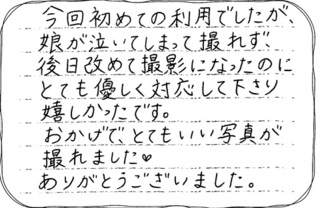 今回初めての利用でしたが、
娘が泣いてしまって撮れず、
後日改めて撮影になったのに
とても優しく対応して下さり
嬉しかったです。
おかげで、とてもいい写真が
撮れました♥
ありがとうございました。